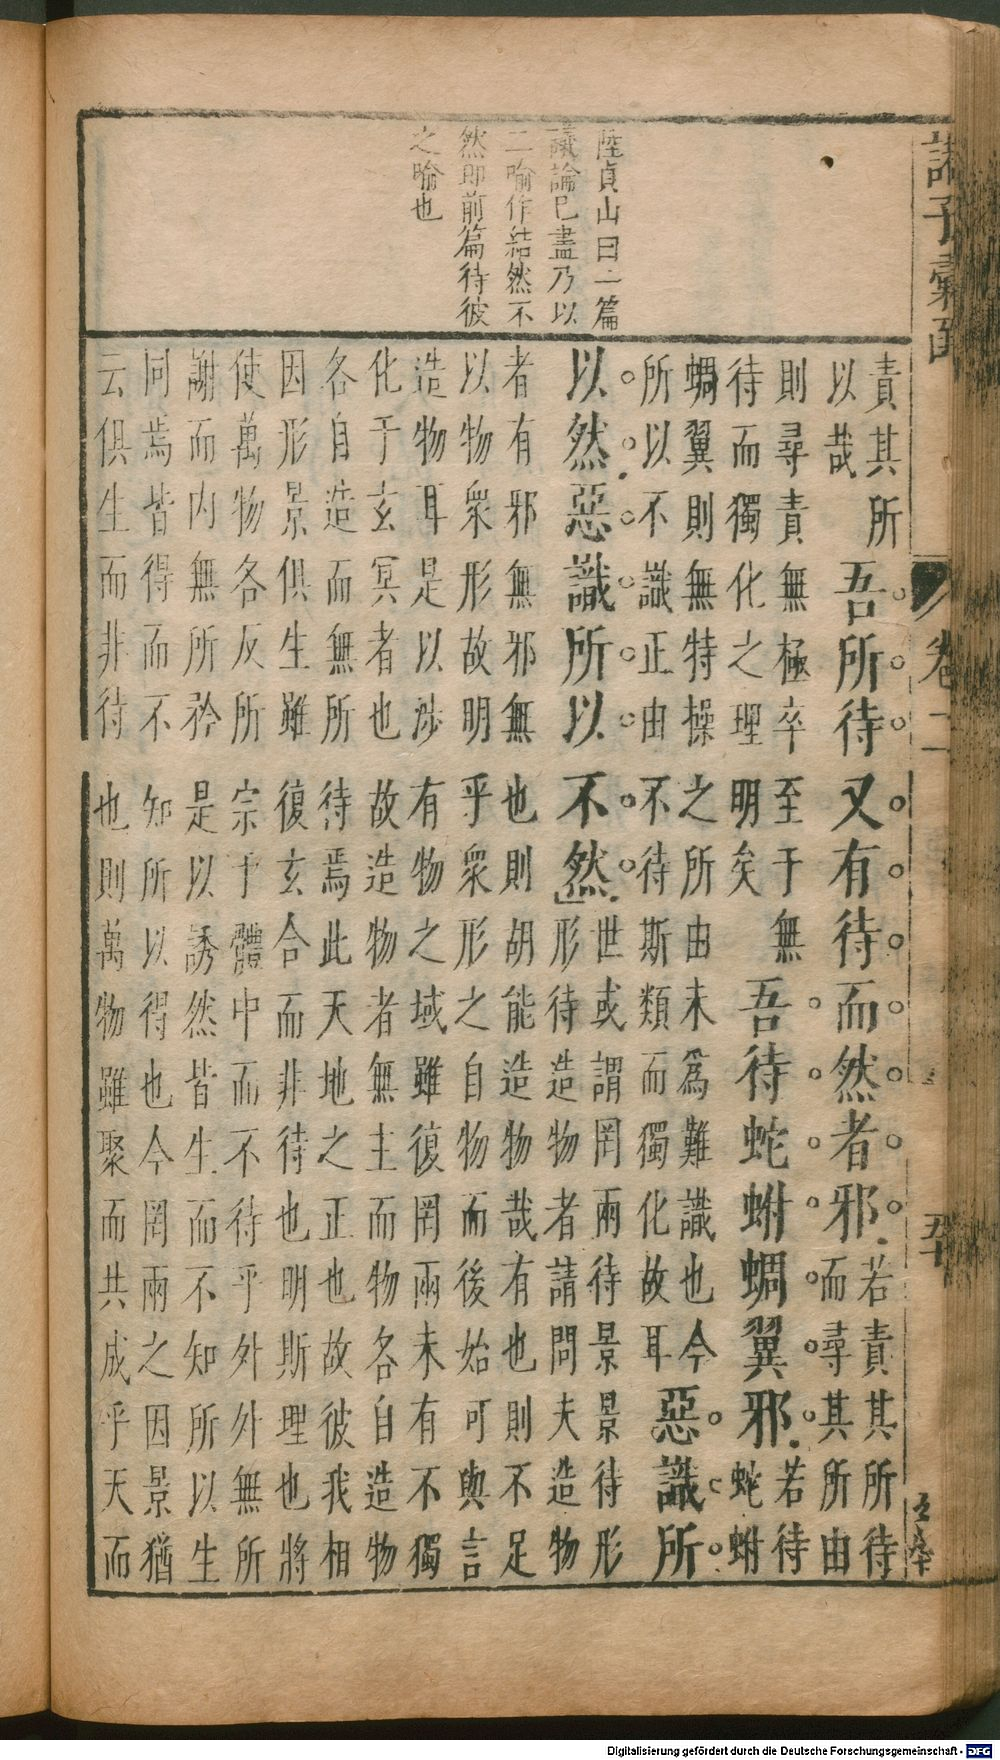 諸子彙函
卷二
五十
陸貞山曰一篇
議論已盡乃以
二喻作結然不
然即前篇待彼
之喻也
責其所
以哉
吾所待又有待而然者邪
若責其所待
而尋其所由
則尋責無極卒至于無
待而獨化之理明矣
吾待蛇蚹蜩翼邪
若待
蛇蚹
蜩翼則無特操之所由未為難識也今
所以不識正由不待斯類而獨化故耳
惡識所
以然惡識所以不然
世或謂罔兩待景景待形
形待造物者請問夫造物
者有邪無邪無也則胡能造物哉有也則不足
以物衆形故明乎衆形之自物而後始可與言
造物耳是以涉有物之域雖復罔兩未有不獨
化于玄冥者也故造物者無主而物各自造物
各自造而無所待焉此天地之正也故彼我相
因形景俱生雖復玄合而非待也明斯理也將
使萬物各反所宗于體中而不待乎外外無所
謝而内無所矜是以誘然皆生而不知所以生
同焉皆得而不知所以得也今罔兩之因景猶
云俱生而非待也則萬物雖聚而共成乎天而
Digitalisierung gefördert durch die Deutsche Forschungsgemeinschaft - DFG